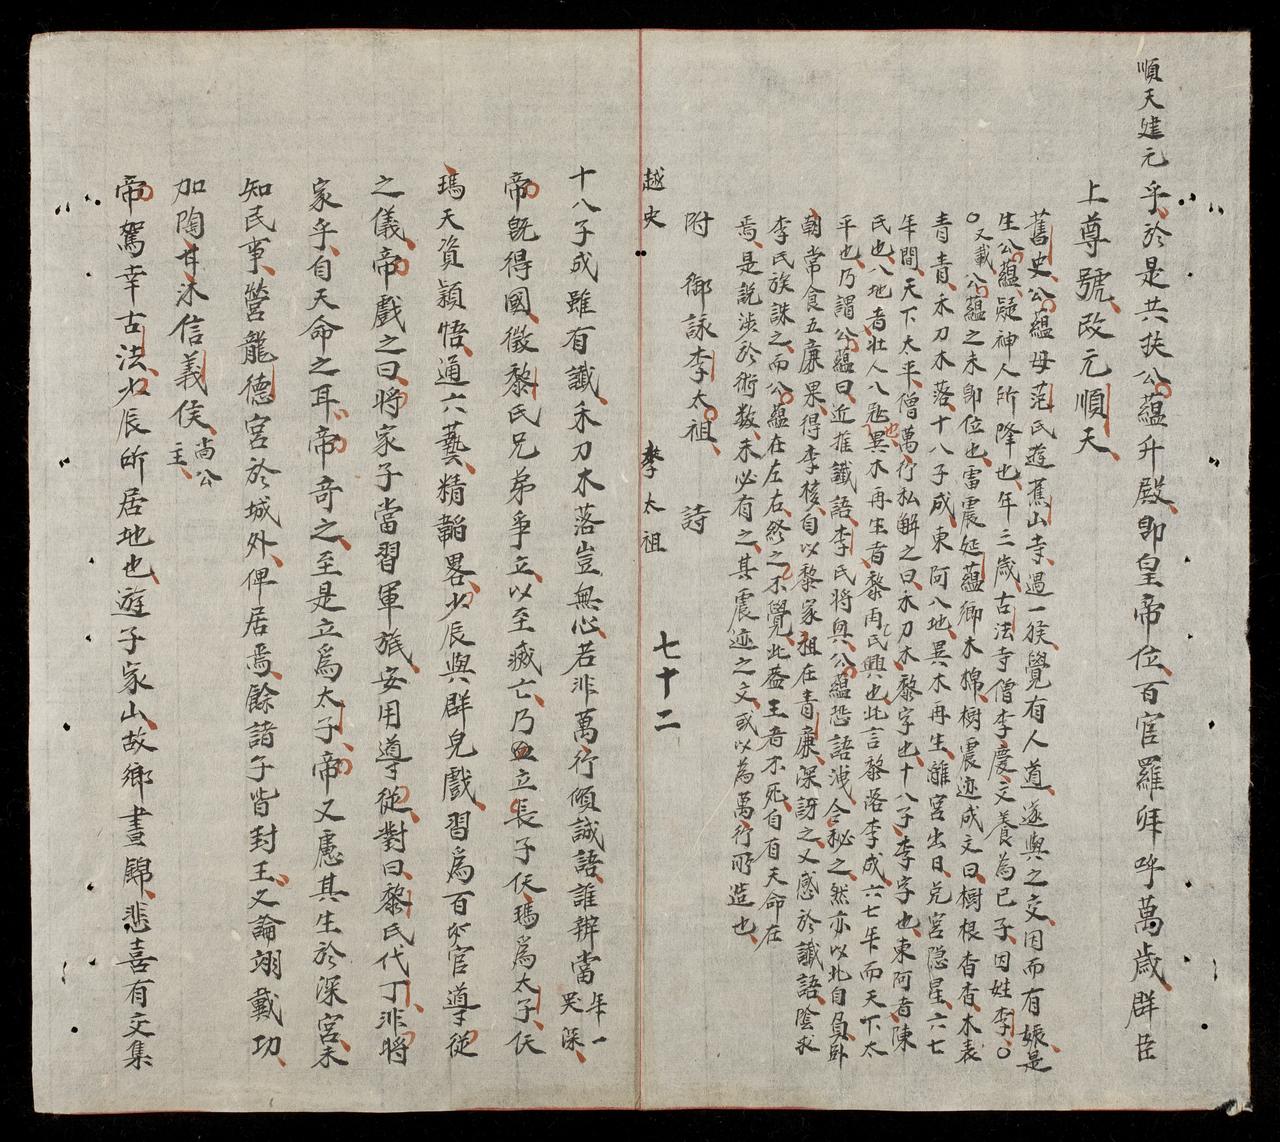 順天建元
乎於是共扶公蘊升殿即皇帝位百官羅拜呼萬歲群臣
上尊號改元順天
舊史公蘊母范氏遊蕉山寺遇一猴覺有人道遂與之交因而有娠是
生公蘊疑神人所降也年三歲古法寺僧李慶文養為己子因姓李○
○又載公蘊之未即位也雷震延蘊鄉木棉樹震迹成文曰樹根杳杳木表
青青禾刀木落十八子成東阿八地異木再生離宮出日兌宮隐星六七
年間天下太平僧萬行私解之曰禾刀木黎字也十八子李字也東阿者陳
氏也八地者壯人八᠎也異木再生者黎再氏興也此言黎落李成六七年而天下太
平也乃謂公蘊曰近推讖語李氏將興公蘊恐語洩令秘之然亦以此自負卧
朝常食五廉果得李核自以黎家祖在青廉深訝之又感於讖語陰求
李氏族誅之而公蘊在左右終之不覺此蓋王者不死自有天命在
焉是說涉於術数未必有之其震迹之文或以為萬行所造也
附 御詠李太祖 詩
越史 李太祖 七十二
十八子成雖有讖禾刀木落豈無心若非萬行傾誠語誰辦當年一哭深
帝既得國徵黎氏兄弟爭立以至滅亡乃亟立長子仸瑪爲太子仸
瑪天資穎悟通六藝精韜畧少辰與群兒戲習爲百官導從
之儀帝戲之曰將家子當習軍旅安用導從對曰黎氏代丁非將
家乎自天命之耳帝奇之至是立爲太子帝又慮其生於深宮未
知民事營龍德宮於城外俾居焉餘諸子皆封王又論翊戴功
加陶甘沐信義侯尚公主
帝駕幸古法少辰所居地也遊子家山故鄉晝錦悲喜有交集